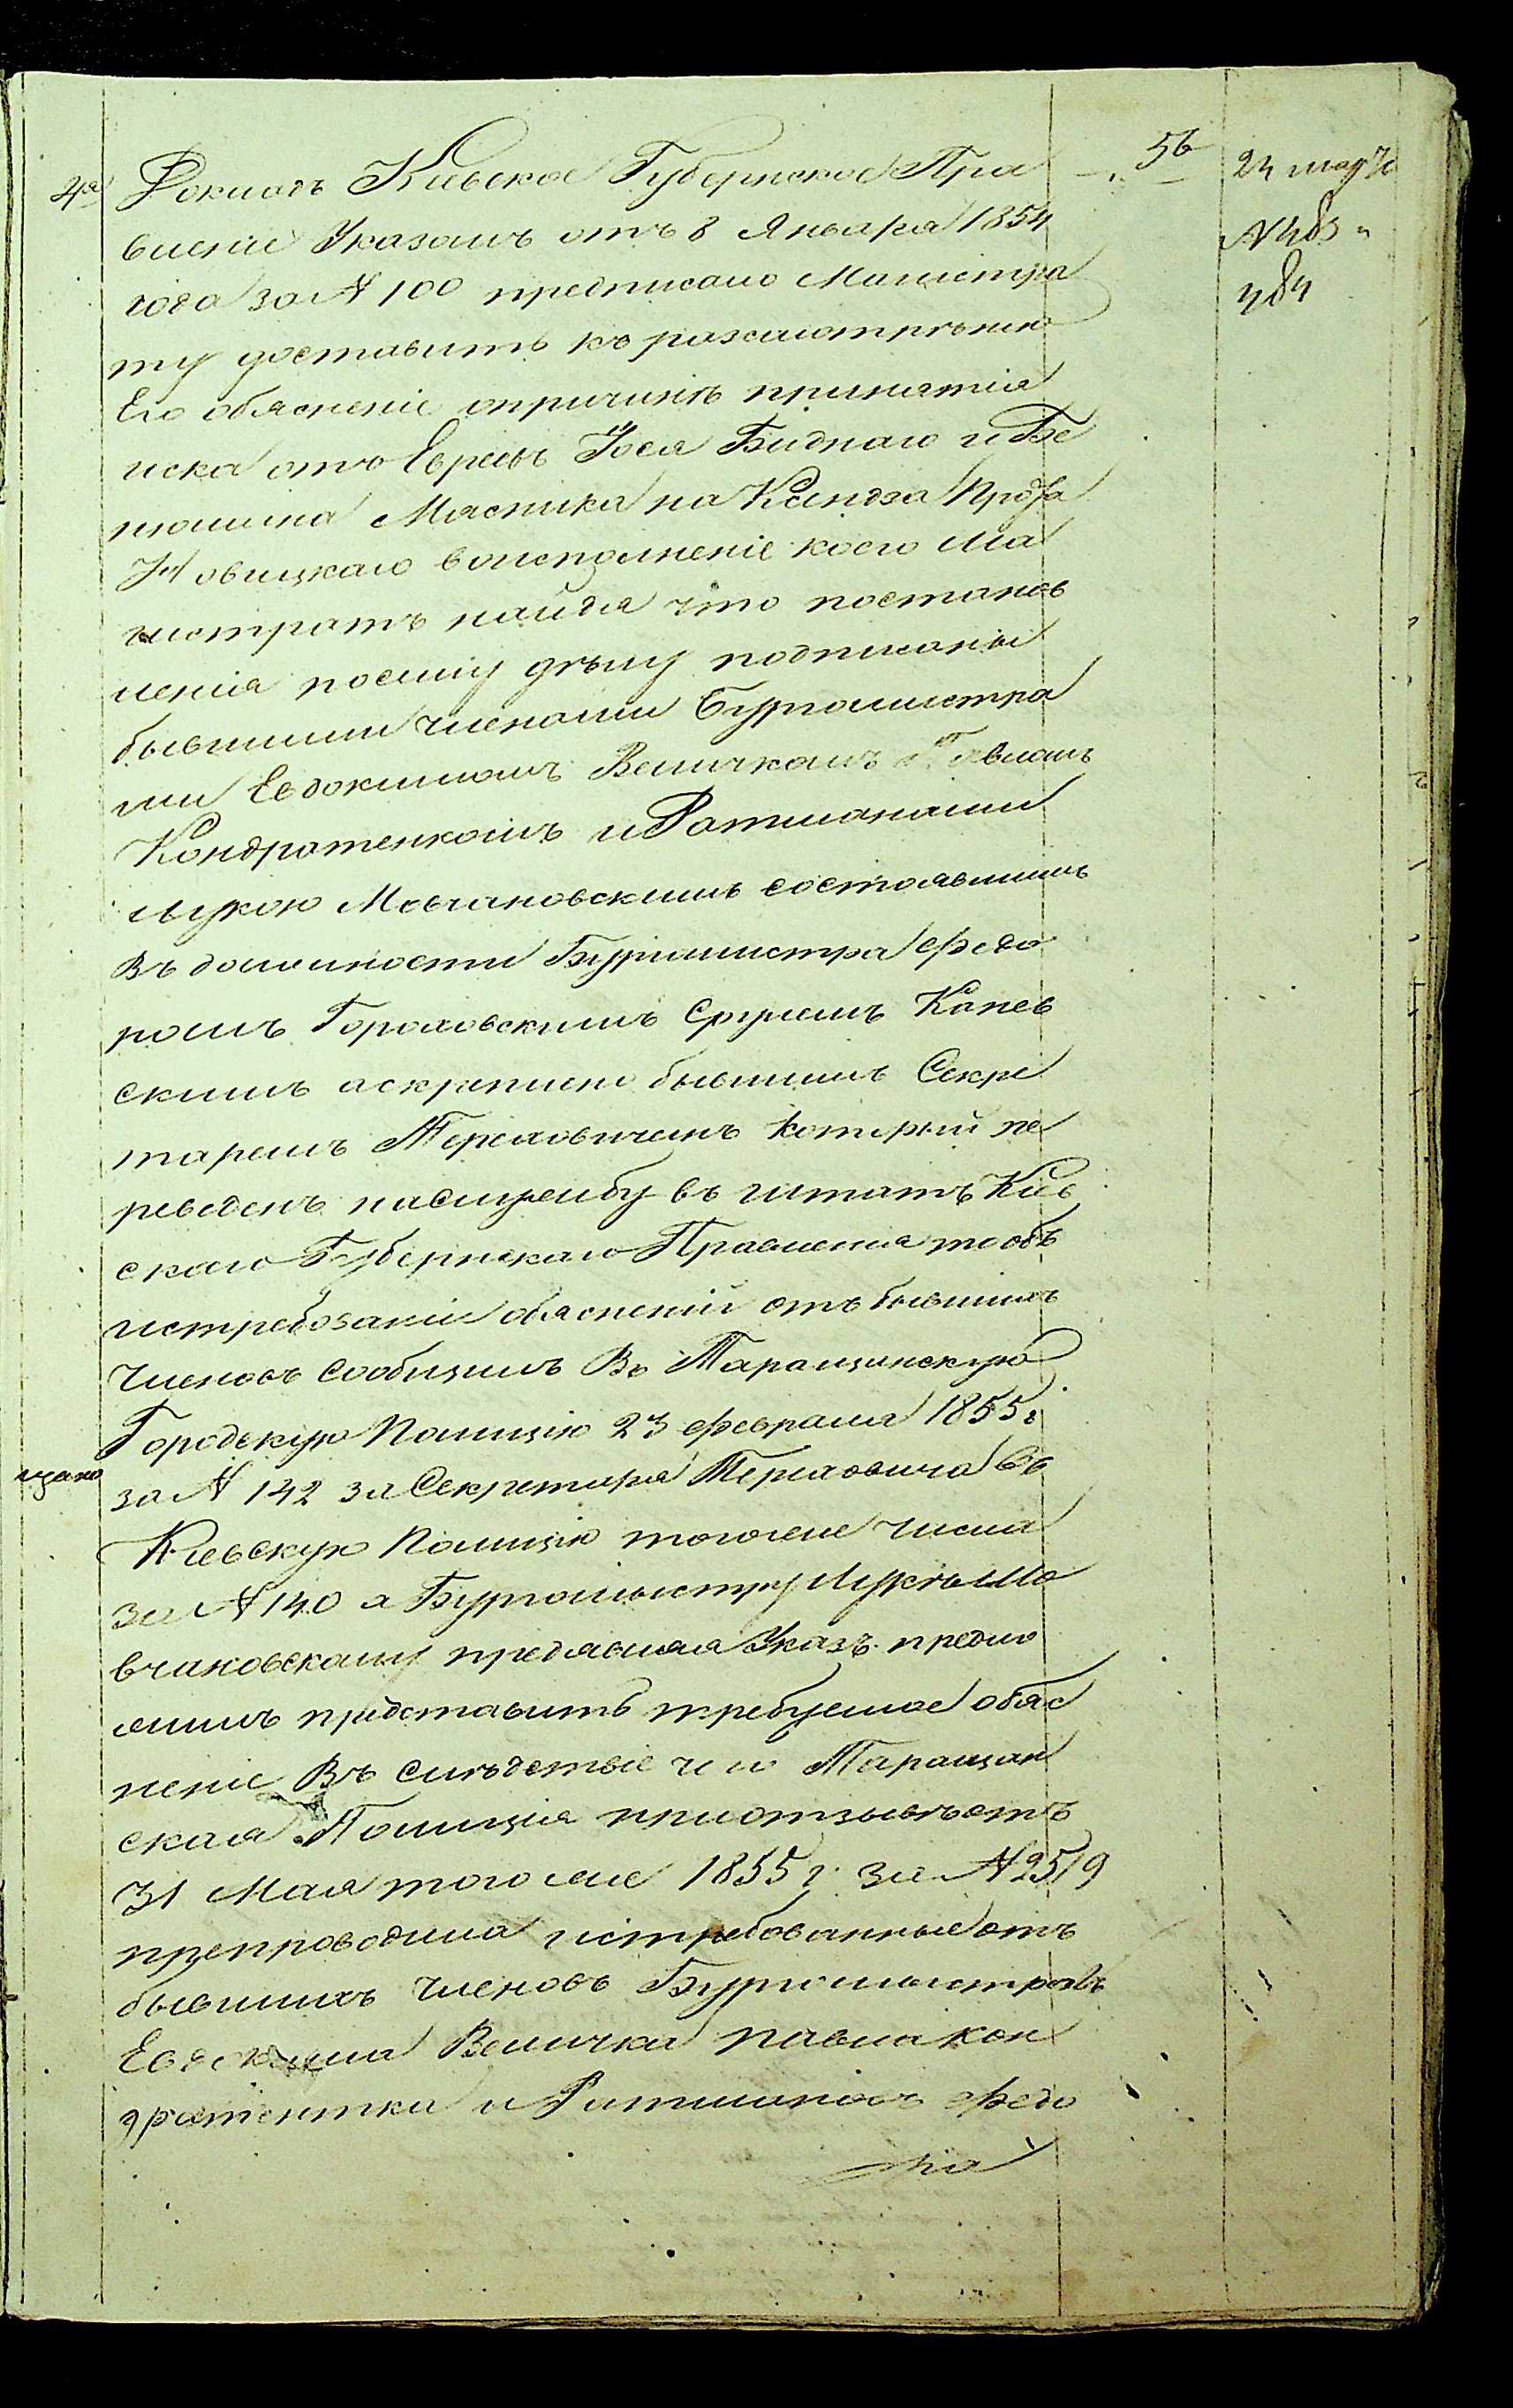 4я
Докладъ Кіевское Губернское Пра
56
24 марта
вленіе Указомъ отъ 8 Января 1854
N 483 и
года за N 100 предписало Магистра
484
ту доставить къ разсмотрѣнію
Его обясненіе опричинѣ принятія
иска отъ Евреевъ Іося Биднаго и Бе
ніомина Мясника на Ксендза
Новицкаго воисполненіе коего Ма
гистратъ найдя что постанов
ленія посему дѣлу подписаны
бывшими членами Бургомистра
ми Евдокимомъ Величкомъ Павломъ
Кондратенкомъ и Ратманами
лукою Мовчановскимъ состоявшимъ
въ должности Бургомистра Федо
ромъ Гороховскимъ Каnев
скимъ аскреплено бывшимъ Секре
таремъ Тереховичемъ который пе
реведенъ наслужбу въ штатъ Кіев
скаго Губернскаго Правленія то объ
истребованіи обясненій отъ бывшихъ
Членовъ сообщилъ въ Таращанскую
Городскую Полицію 23 февраля 1855 г
за N 142 за Секретаря Тереховича въ
Кіевскую Полицію тогоже числа
за N 140 а Бургомыстру Лукѣ Мо
вчановскому предявляя Указъ предло
жилъ представить требуемое обяс
неніе Въ слѣдствіе чего Таращан
ская Полиція приотзывѣ отъ
31 Мая того же 1855 г. за N 2519
препроводила истребованные отъ
бывшихъ Членовъ Бургомыстровъ
Евдокима Величка павла Кон
дратентка и Ратмановъ Федо
ра